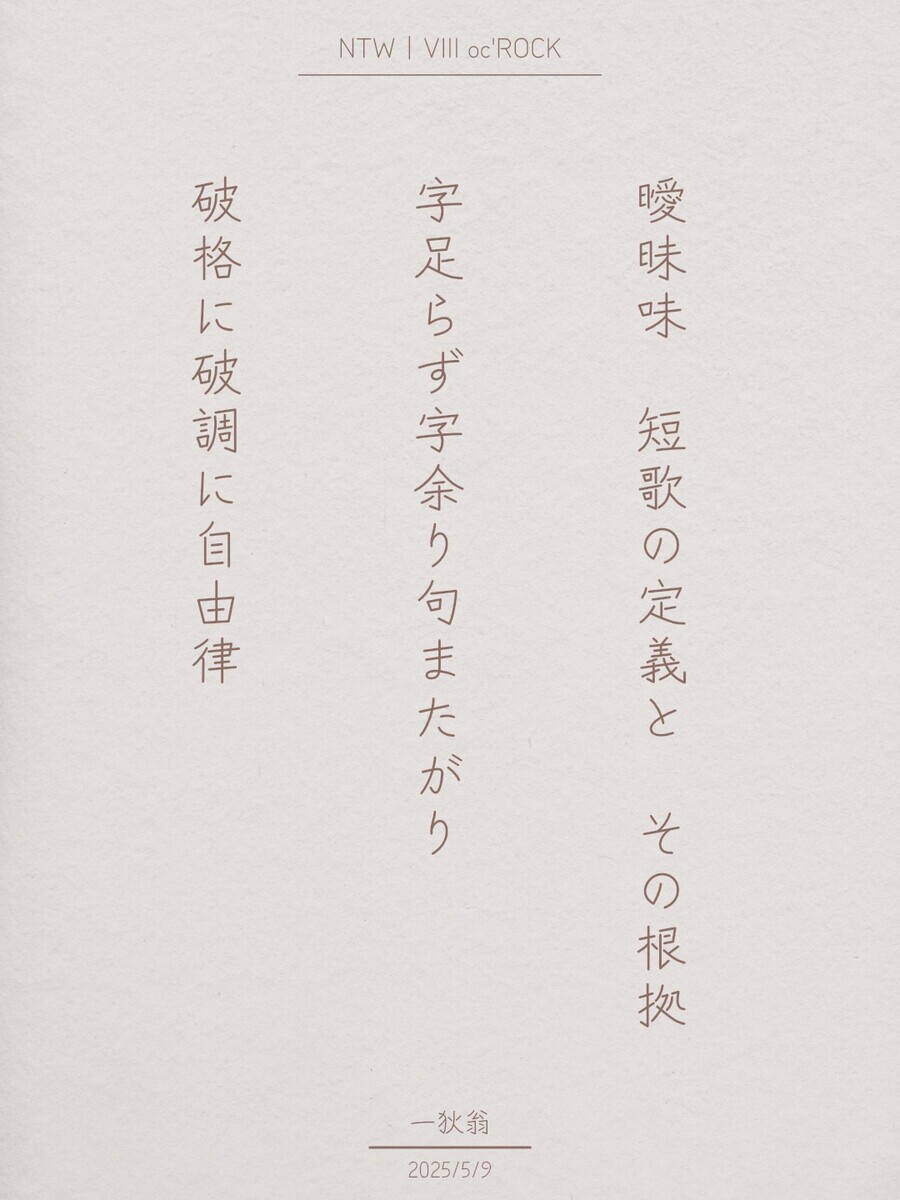 NTW | VIII oc'ROCK
曖昧味　短歌の定義と　その根拠
字足らず字余り句またがり
破格に破調に自由律
一狄翁
2025/5/9